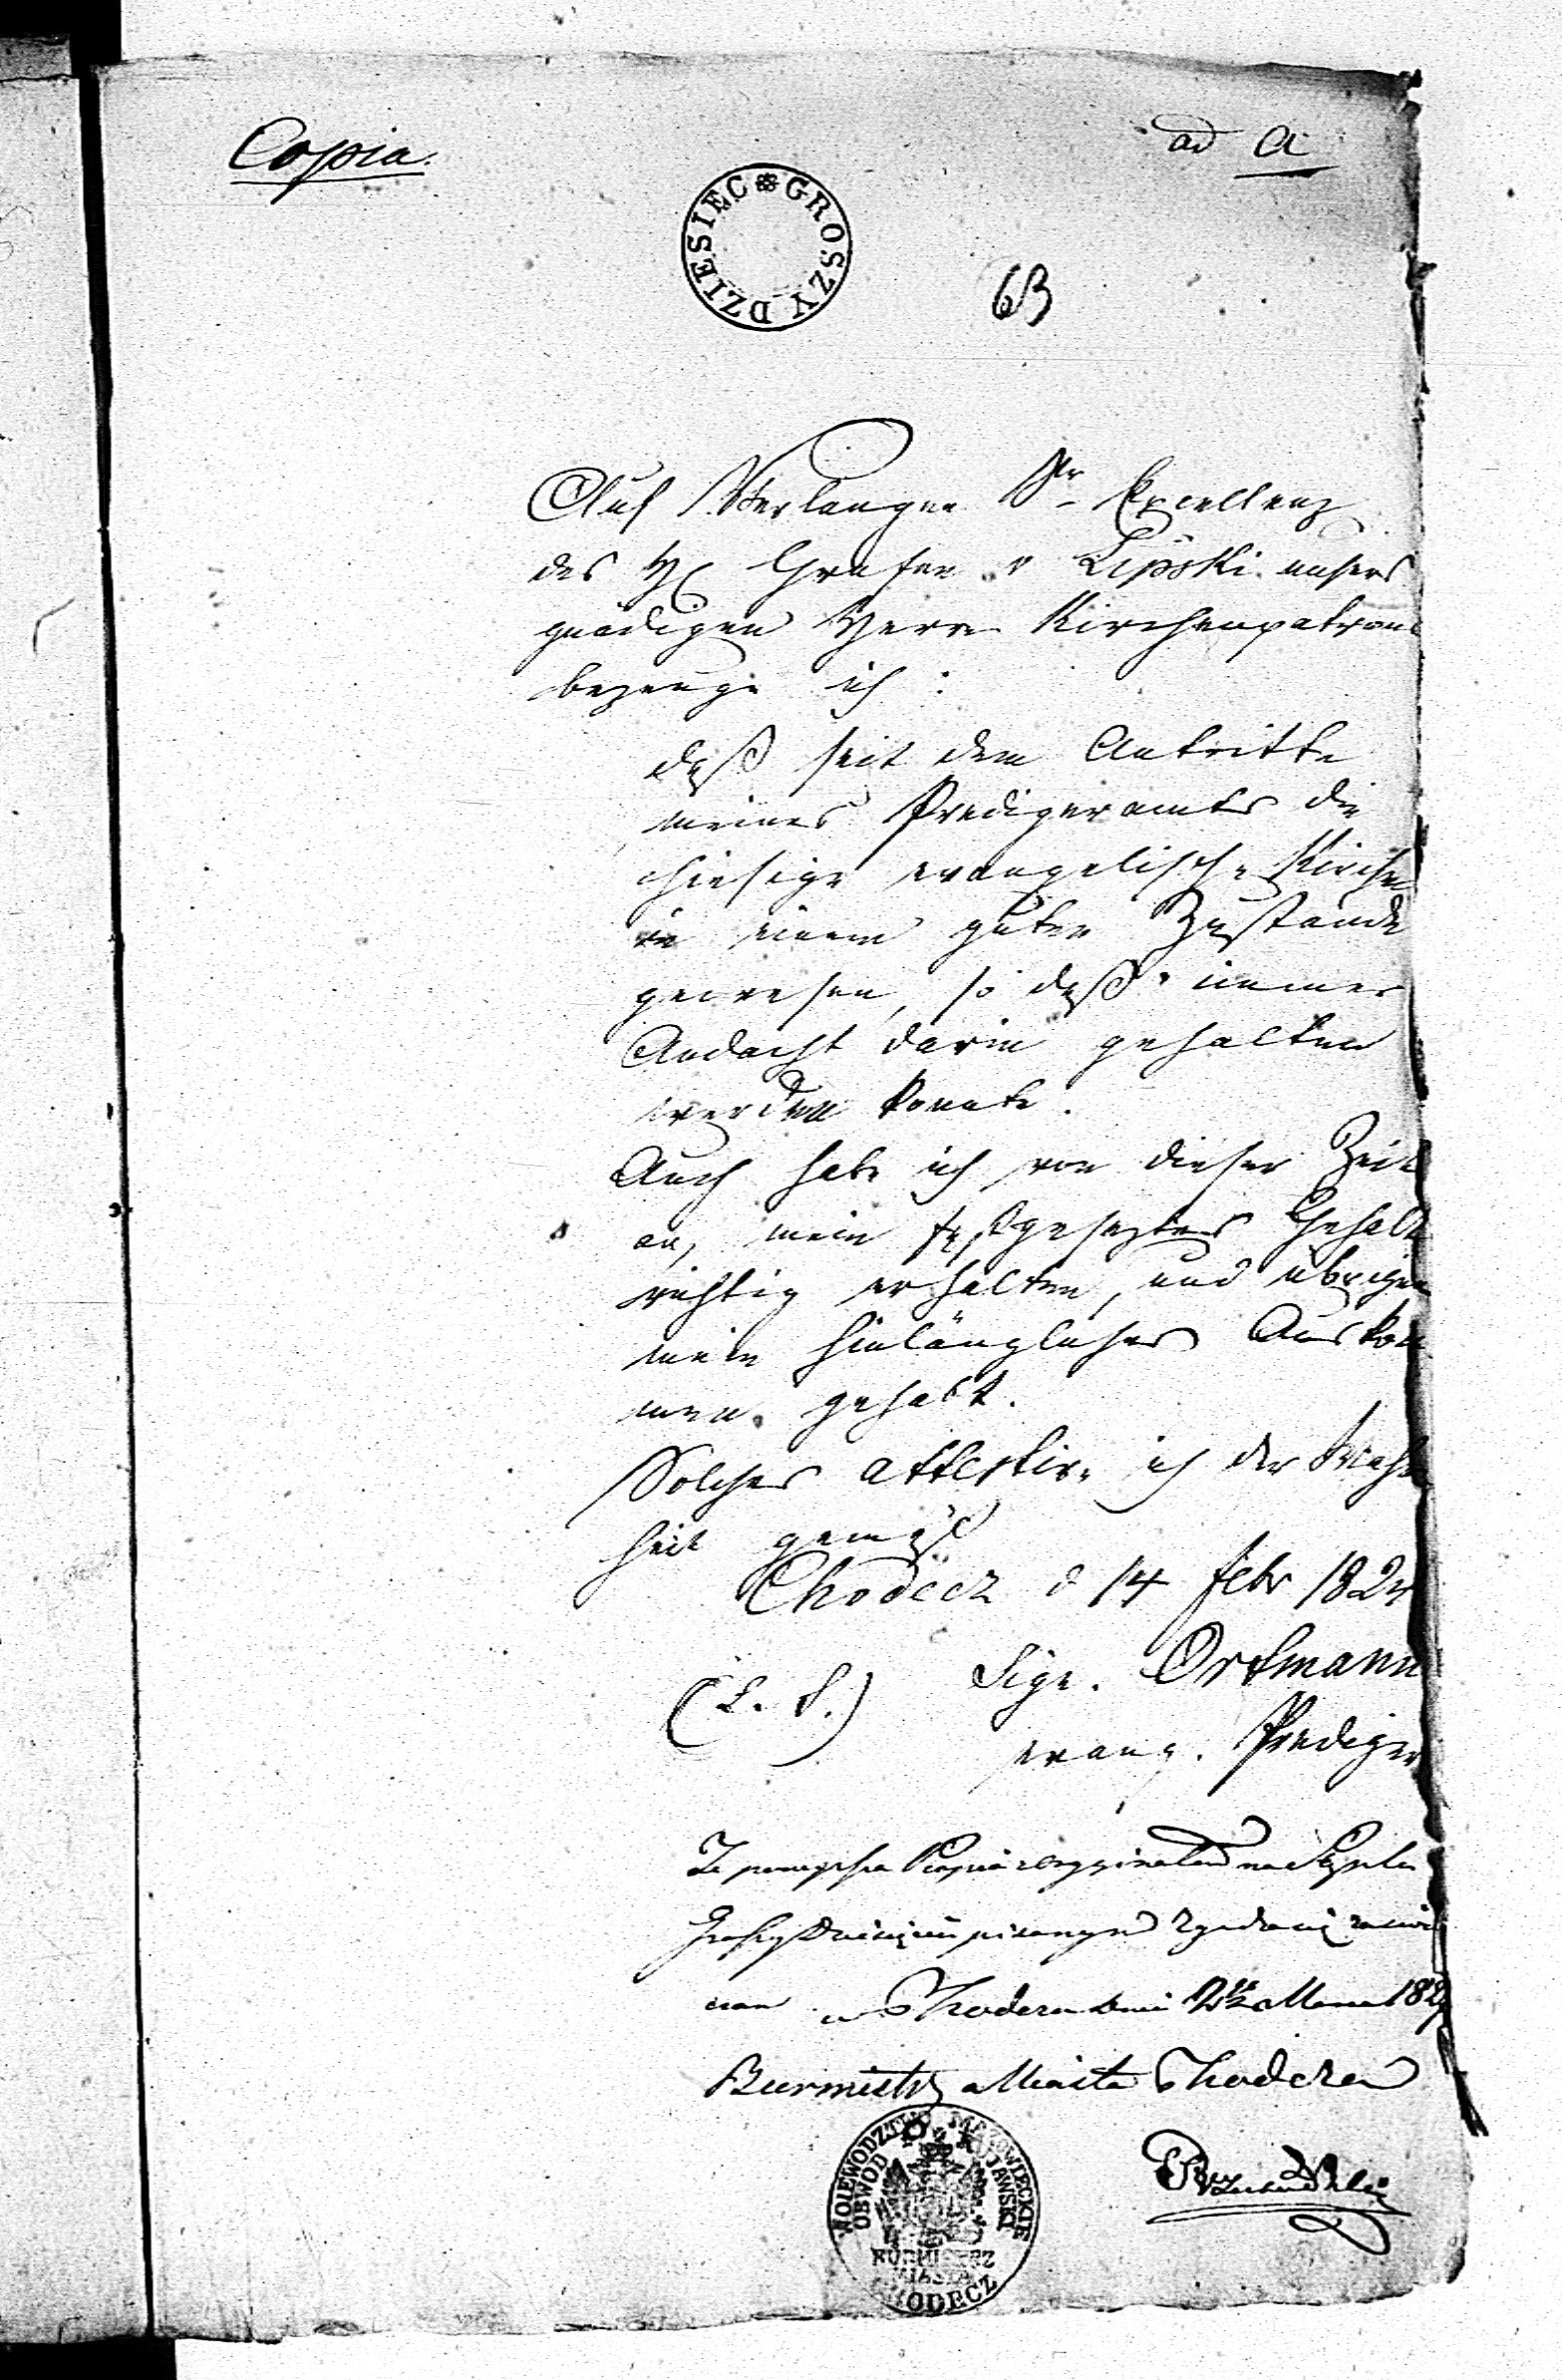 Copia.
ad a
GROSZY DZIESIEC
63
Auf Verlangen Sr Excellenz
des H. Grafen v Lipski unsers
gnädigen Herrn Kirchenpatrons
bezeuge ich :
daß seit dem Antritte
meines Predigeramts die
hiesige evangelische Kirche
in einem guten Zustande
gewesen, so daß immer
Andacht darin gehalten
werden konnte.
Auch habe ich von dieser Zeit
an, mein festgeseztes Gehalt
richtig erhalten, und übrigens
mein hinlängliches Auskom
men gehabt.
Solches attestire ich der Wahr
heit gemäß
Chodecz d 14 Febr 1824
(L. S.) Sign. Ortmann
evang. Prediger
Że powyższa Kopia z oryginałem na Stęplu
Groszy Dziesięć pisanym zgadza się
w Chodczu dnia Marca 182
Burmistrz Miasta Chodcza
WOIEWODZTWO MAZOWIECKIE
OBWOD KUJAWSKI
BURMISTRZ
MIASTA
CHODECZ